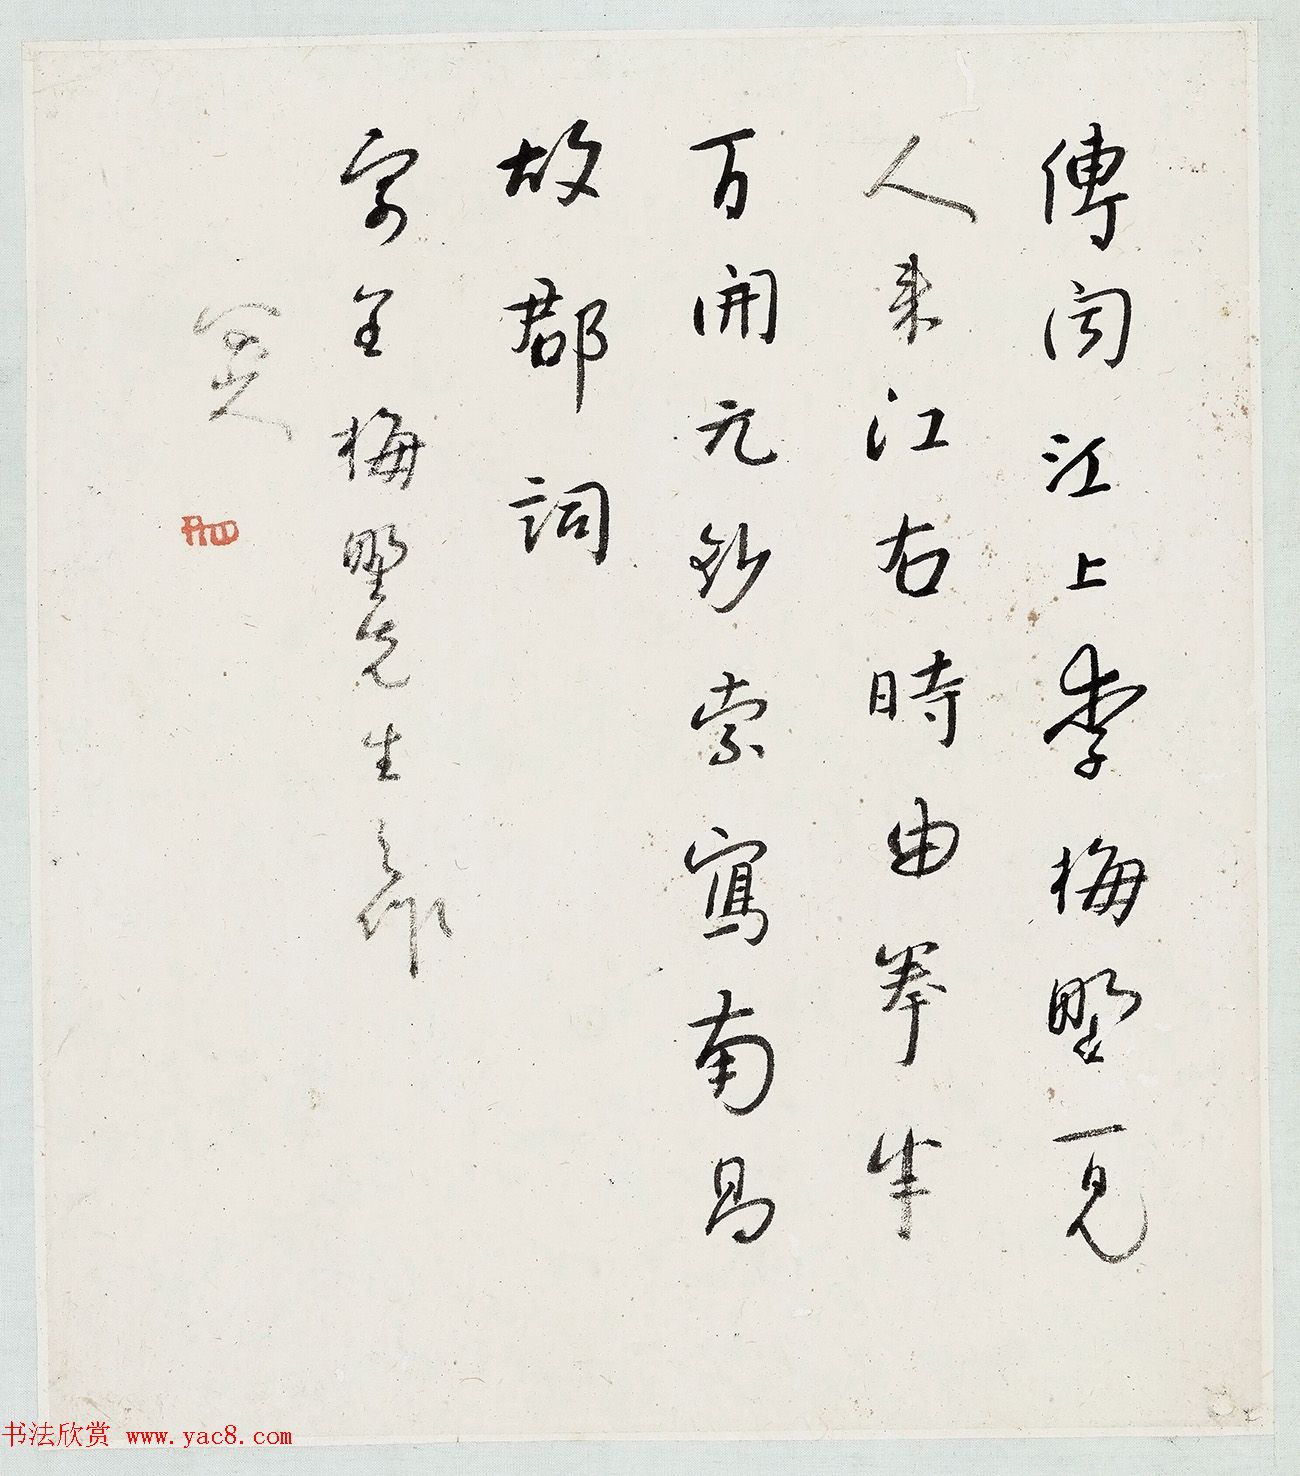 傳聞江上李梅野一見
人來江右時由拳半
百開元鈔索寫南昌
故郡詞
寄呈梅野先生之作
书法欣赏 www.yac8.com